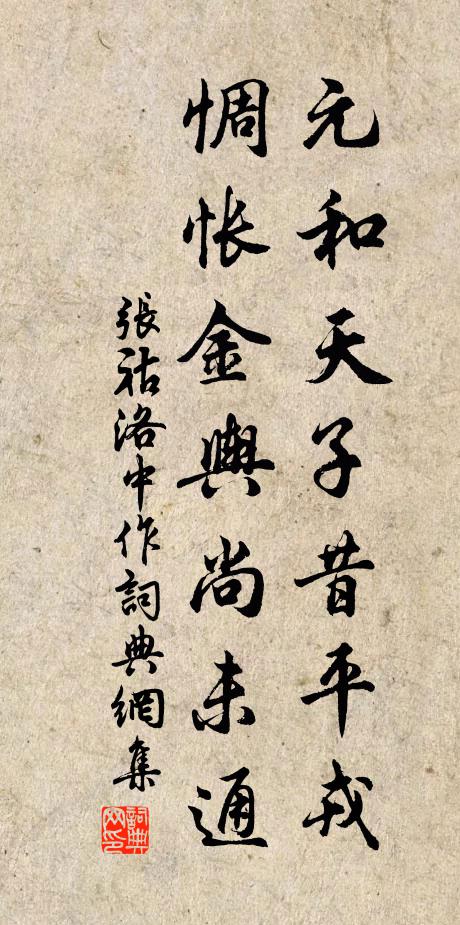 元和天子昔平戎
惆怅金輿尚未通
張祜洛中作詞典網集
詞典網印